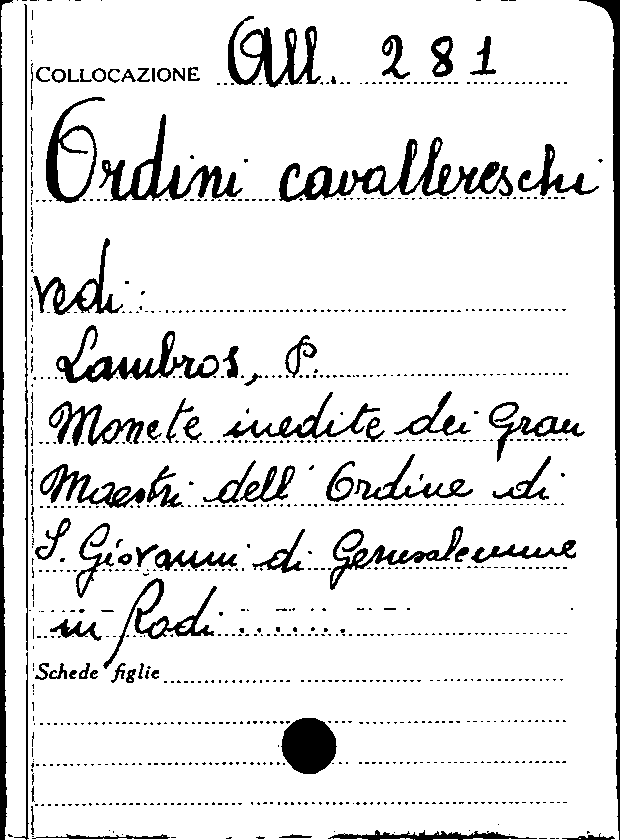 COLLOCAZIONE All. 281
Ordini cavallereschi
vedi:
Lambros, P.
Monete inedite dei Gran
Maestri dell'Ordine di
S. Giovanni di Gerusalemme
in Rodi .......
Schede figlie